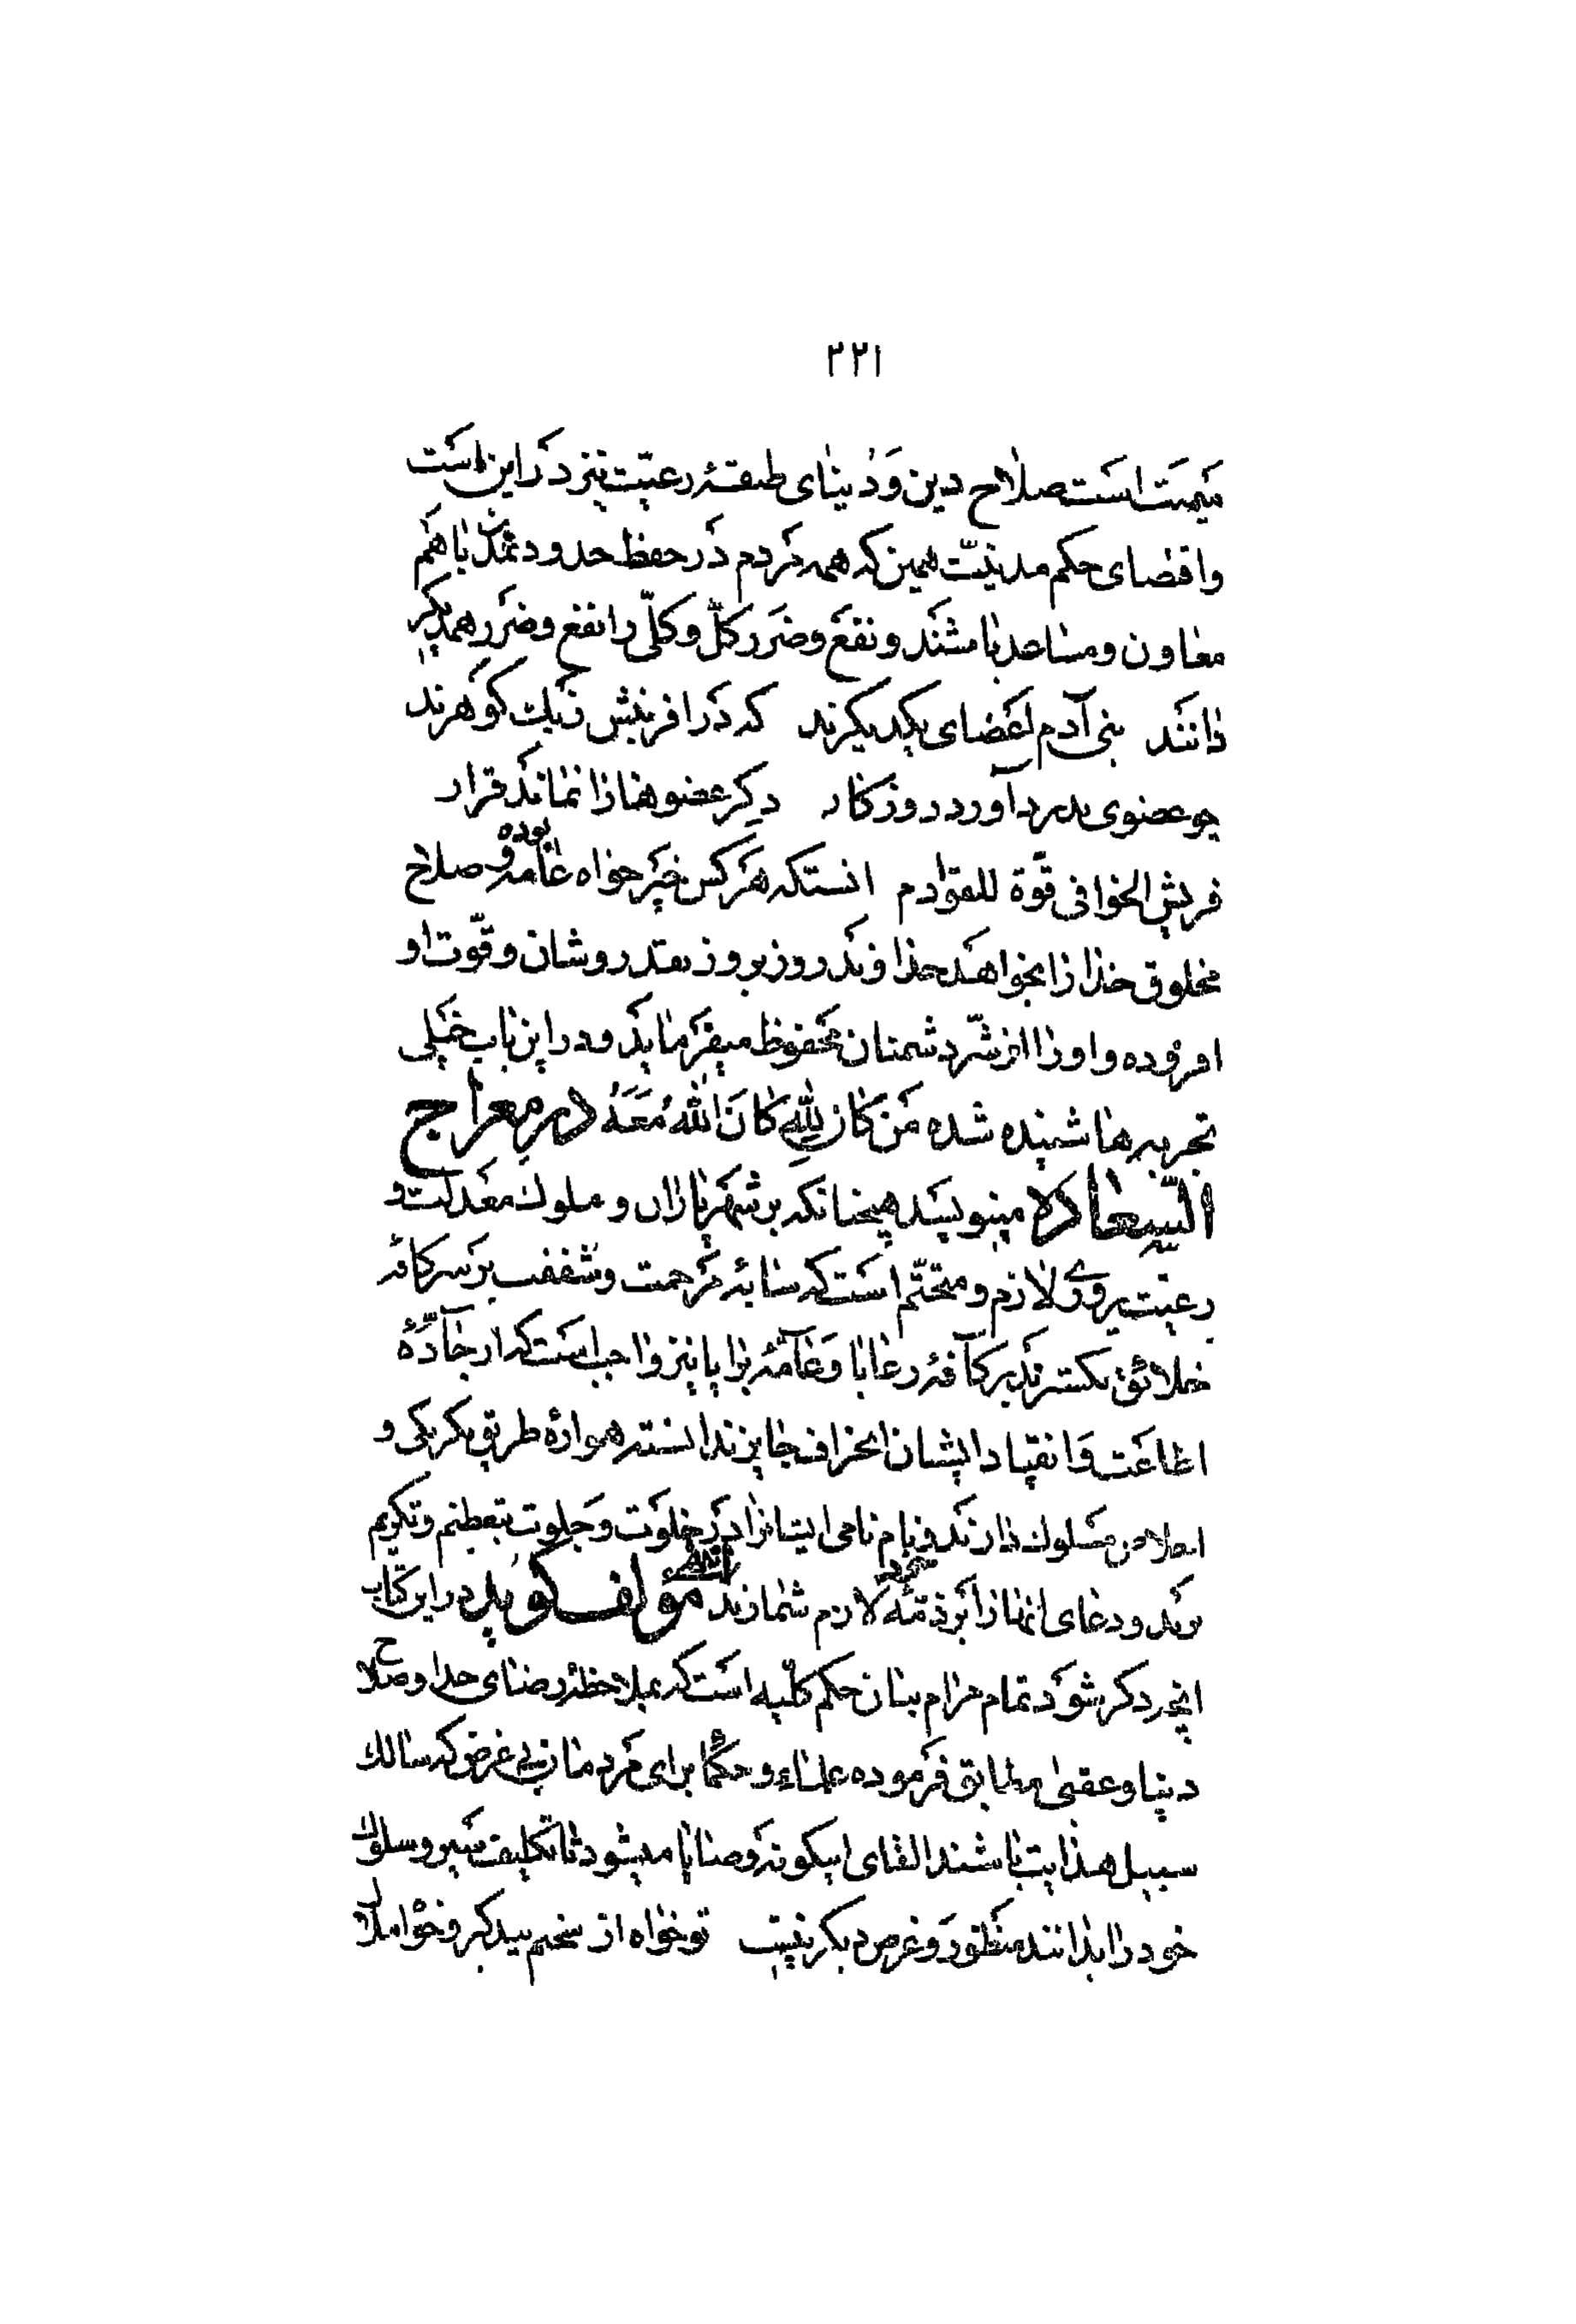 ۲۲۱
میمنت است صلاح دین و دنیای طبقهٔ رعیّت نیز در این است
و اقتضای حکم مدنیّت همین که همه مردم در حفظ حدود تمدّن باهم
معاون و مساعد باشند و نفع و ضرر کلّ و کلّی را نفع و ضرر همدیگر
دانند بنی آدم اعضای یکدیگرند که در افرینش ز یک گوهرند
چو عضوی بدرد آورد روزگار دگر عضوها را نماند قرار
فریش الخوافی قوّة للقوادم انستکه هر کس خیرخواه عامّه بوده و صلاح
مخلوق خدا را بخواهد خداوند روز بروز بقدر و شان و قوّت او
افزوده و او را از شرّ دشمنان محفوظ میفرماید و در این باب خیلی
تجربه‌ها شنیده شده مَن کانَ لِلّٰهِ کانَ اللّٰهُ مَعَهُ در معراج
السّعاده مینویسد همچنانکه بر شهریاران و ملوک معدلت و
رعیّت پروری لازم و متحتّم است که سایه مرحمت و شفقت بر سر کافّه
خلائق بگسترند بر کافّهٔ رعایا و عامّهٔ برایا نیز واجب است که از جادّهٔ
اطاعت و انقیاد ایشان انحراف جایز ندانسته همواره طریق یکرنگی و
اخلاص مسلوک دارند و نام نامی ایشانرا در خلوت و جلوت بتعظیم و تکریم
برند و دعای انها را بر ذمّه خود لازم شمارند انتهی مؤلف گوید در این کتاب
انچه ذکر شود تمام مرام بیان حکم کلّیه است که بملاحظهٔ رضای خدا و صلاح
دنیا و عقبی مطابق فرموده علماء و حکما برای مردمان بی غرض که سالک
سبیل هدایت باشند القای اینگونه وصایا میشود تا تکلیف سیر و سلوک
خود را بدانند منظور و غرض دیگر نیست تو خواه از سخنم پند گیر و خواه ملال